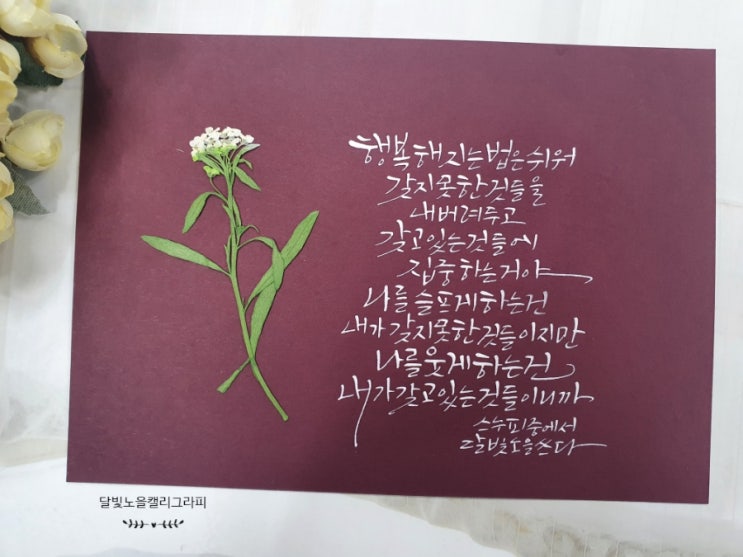 행복해지는법은쉬워
갖지못한것들을
내버려두고
갈고있는것들에
집중하는거야
나를슬프게하는건
내가갖지못한것들이지만
나를웃게하는건
내가갖고있는것들이니까
스누피중에서
달빛노을쓰다
달빛노을캘리그라피